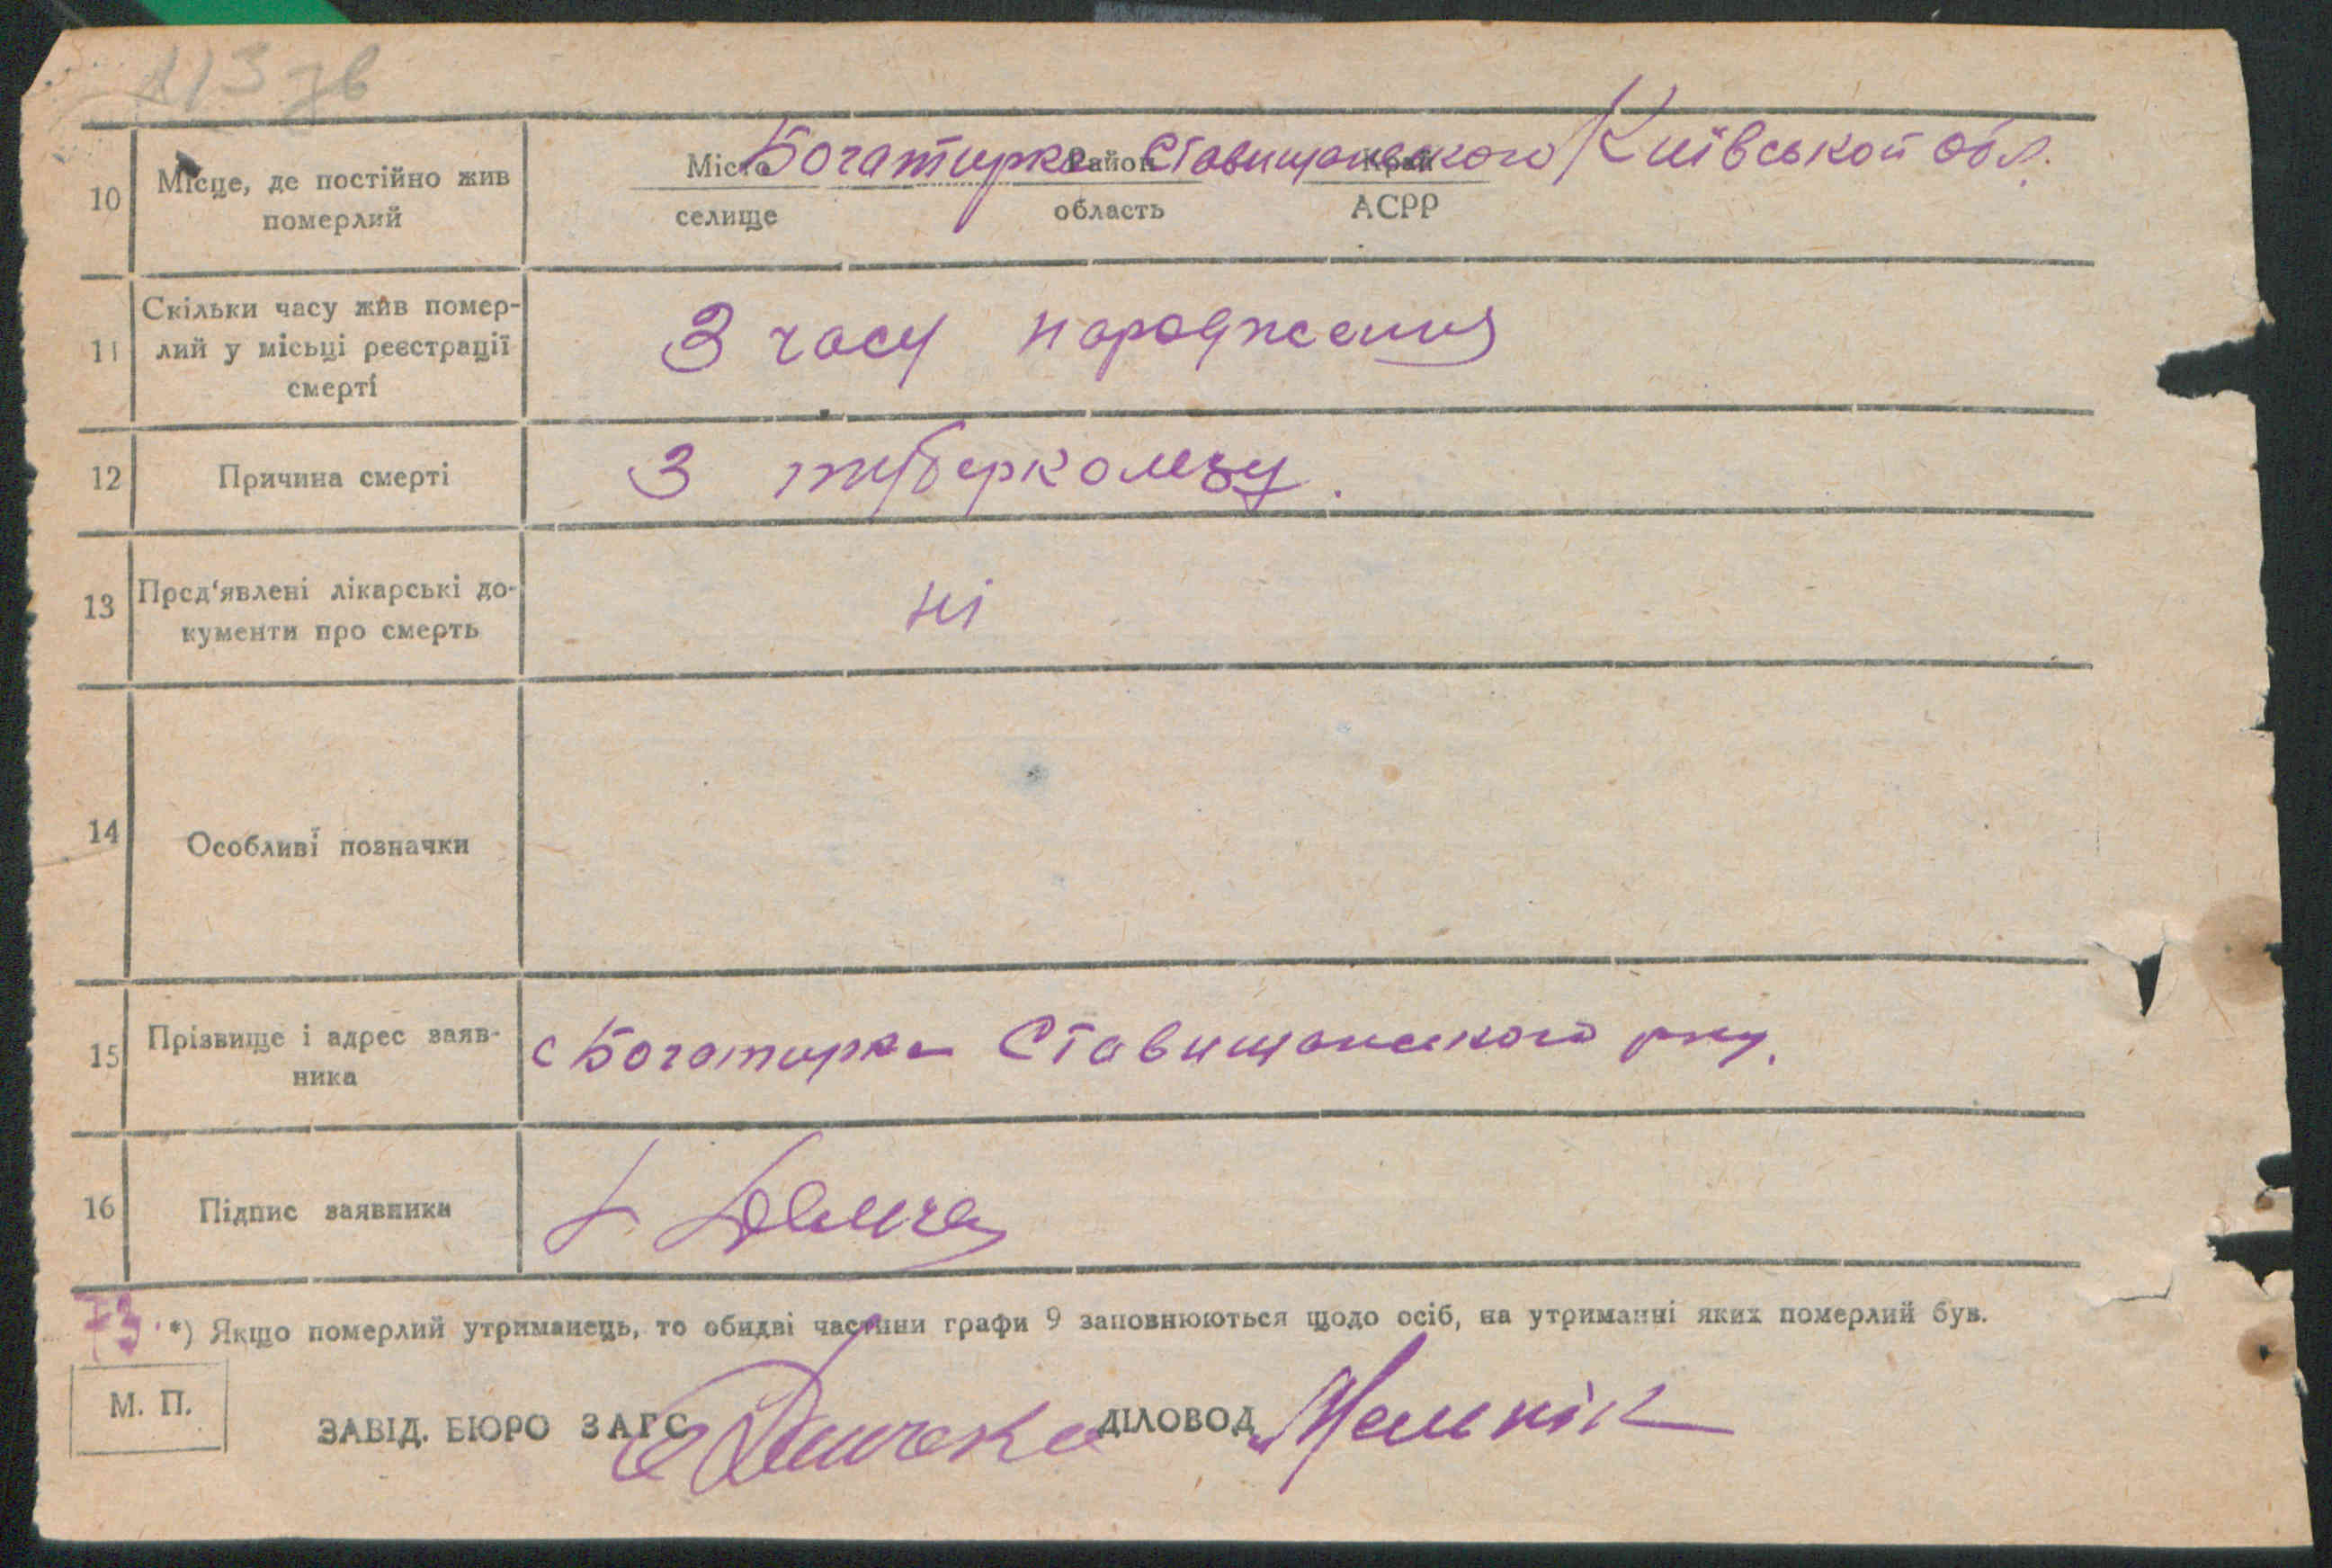 113 зв
10 Місце, де постійно жив
померлий
Місто Район Край
Богатирка Ставищанського Київськой обл.
селище область АСРР
11 Скільки часу жив помер-
лий у місьці реєстрації
смерті
З часу народження
12 Причина смерті З туберкользу.
13 Пред'явлені лікарські до-
кументи про смерть
ні
14 Особливі позначки
15 Прізвище і адрес заяв-
ника
с Богатирка Ставищанського рну.
16 Підпис заявника
73. *) Якщо померлий утриманець, то обидві частини графи 9 заповнюються щодо осіб, на утриманні яких померлий був.
М. П.
ЗАВІД. БЮРО ЗАГС ДІЛОВОД Мельнік